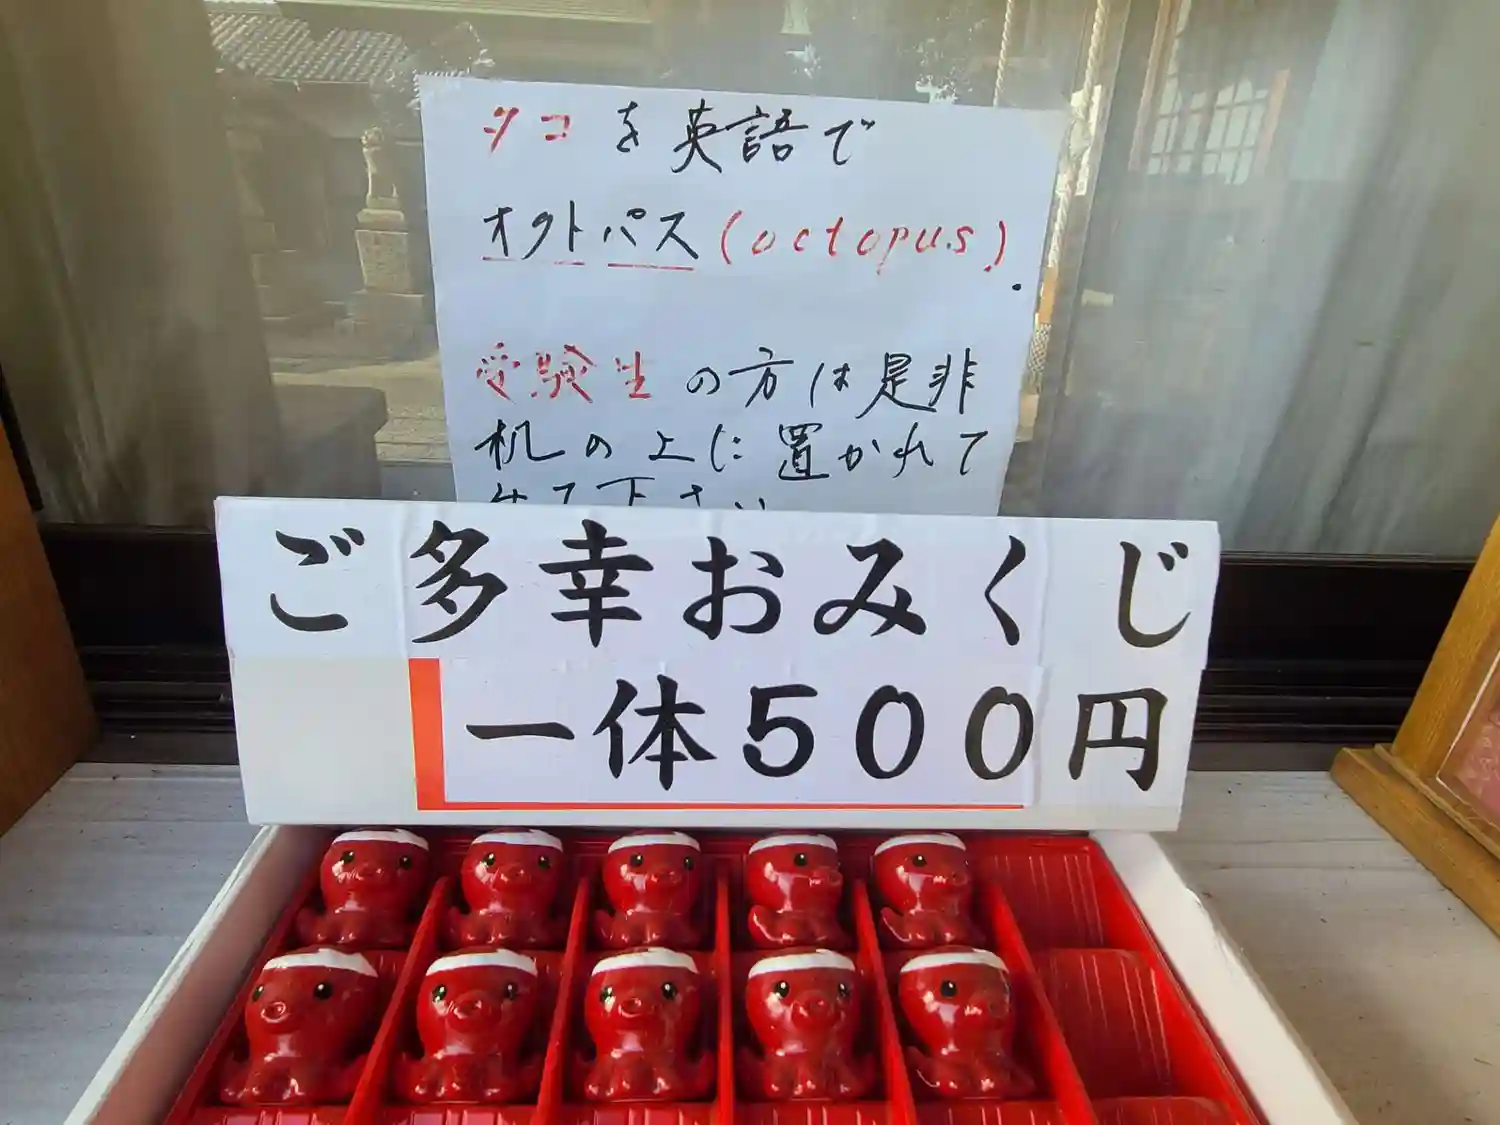 タコを英語で
オクトパス(octopus).
受験生の方は是非
机の上に置かれて
みて下さい
ご多幸おみくじ
一体500円